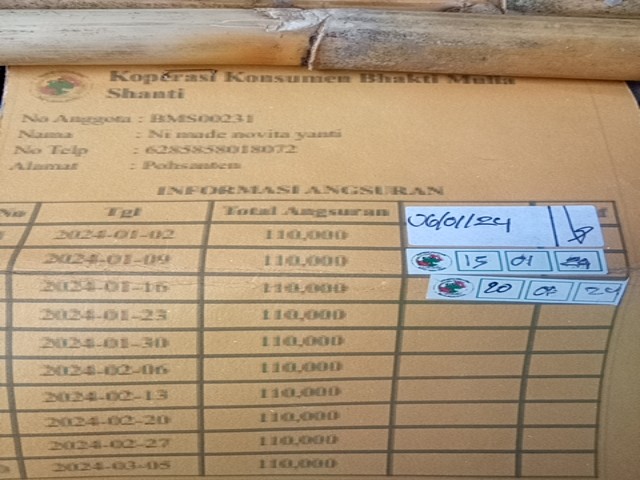 Koperasi Konsumen Bhakti Mulia
Shanti
No Anggota : BMS00231
Nama : Ni made novita yanti
No Telp : 6285858018072
Alamat : Pohsanten
INFORMASI ANGSURAN
No Tgl Total Angsuran
2024-01-02 110,000 06/01/24
2024-01-09 110,000 15 01
2024-01-16 110,000 20 24
2024-01-23 110,000
2024-01-30 110,000
2024-02-06 110,000
2024-02-13 110,000
2024-02-20 110,000
2024-02-27 110,000
2024-03-05 110,000